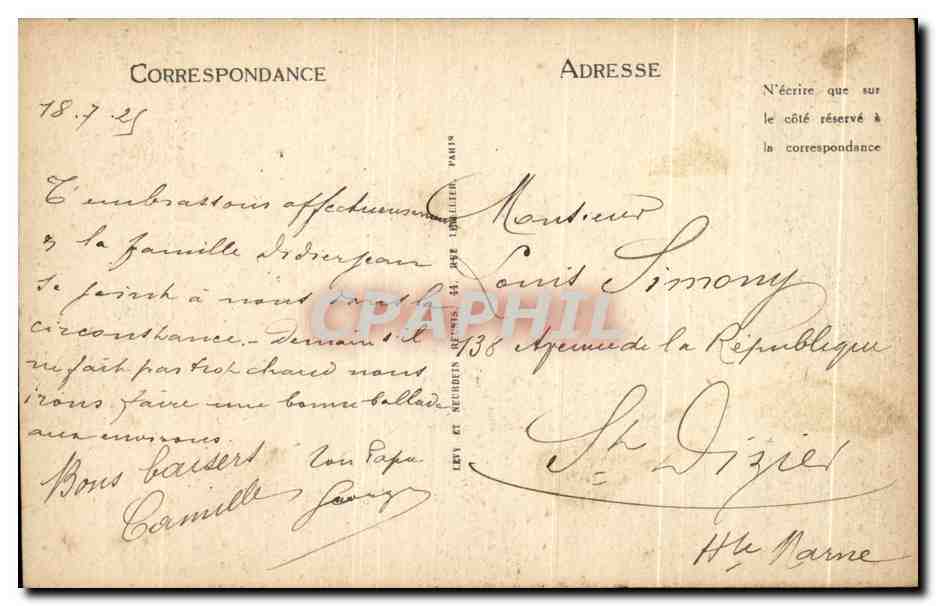 CORRESPONDANCE
18.7.25
T'embrassons affectueusement
& la famille Didierjean
se joint à nous dans la
circonstance. - Demain s'il
ne fait pas trop chaud nous
irons faire une bonne ballade
aux environs.
Bons baisers Ton Papa
Camille George
LEVY ET NEURDEIN REUNIS, 44, RUE LETELLIER, PARIS
ADRESSE
N'écrire que sur
le côté réservé à
la correspondance
Monsieur
Louis Simony
138 Avenue de la République
St Dizier
Hte Marne
CPAPHIL